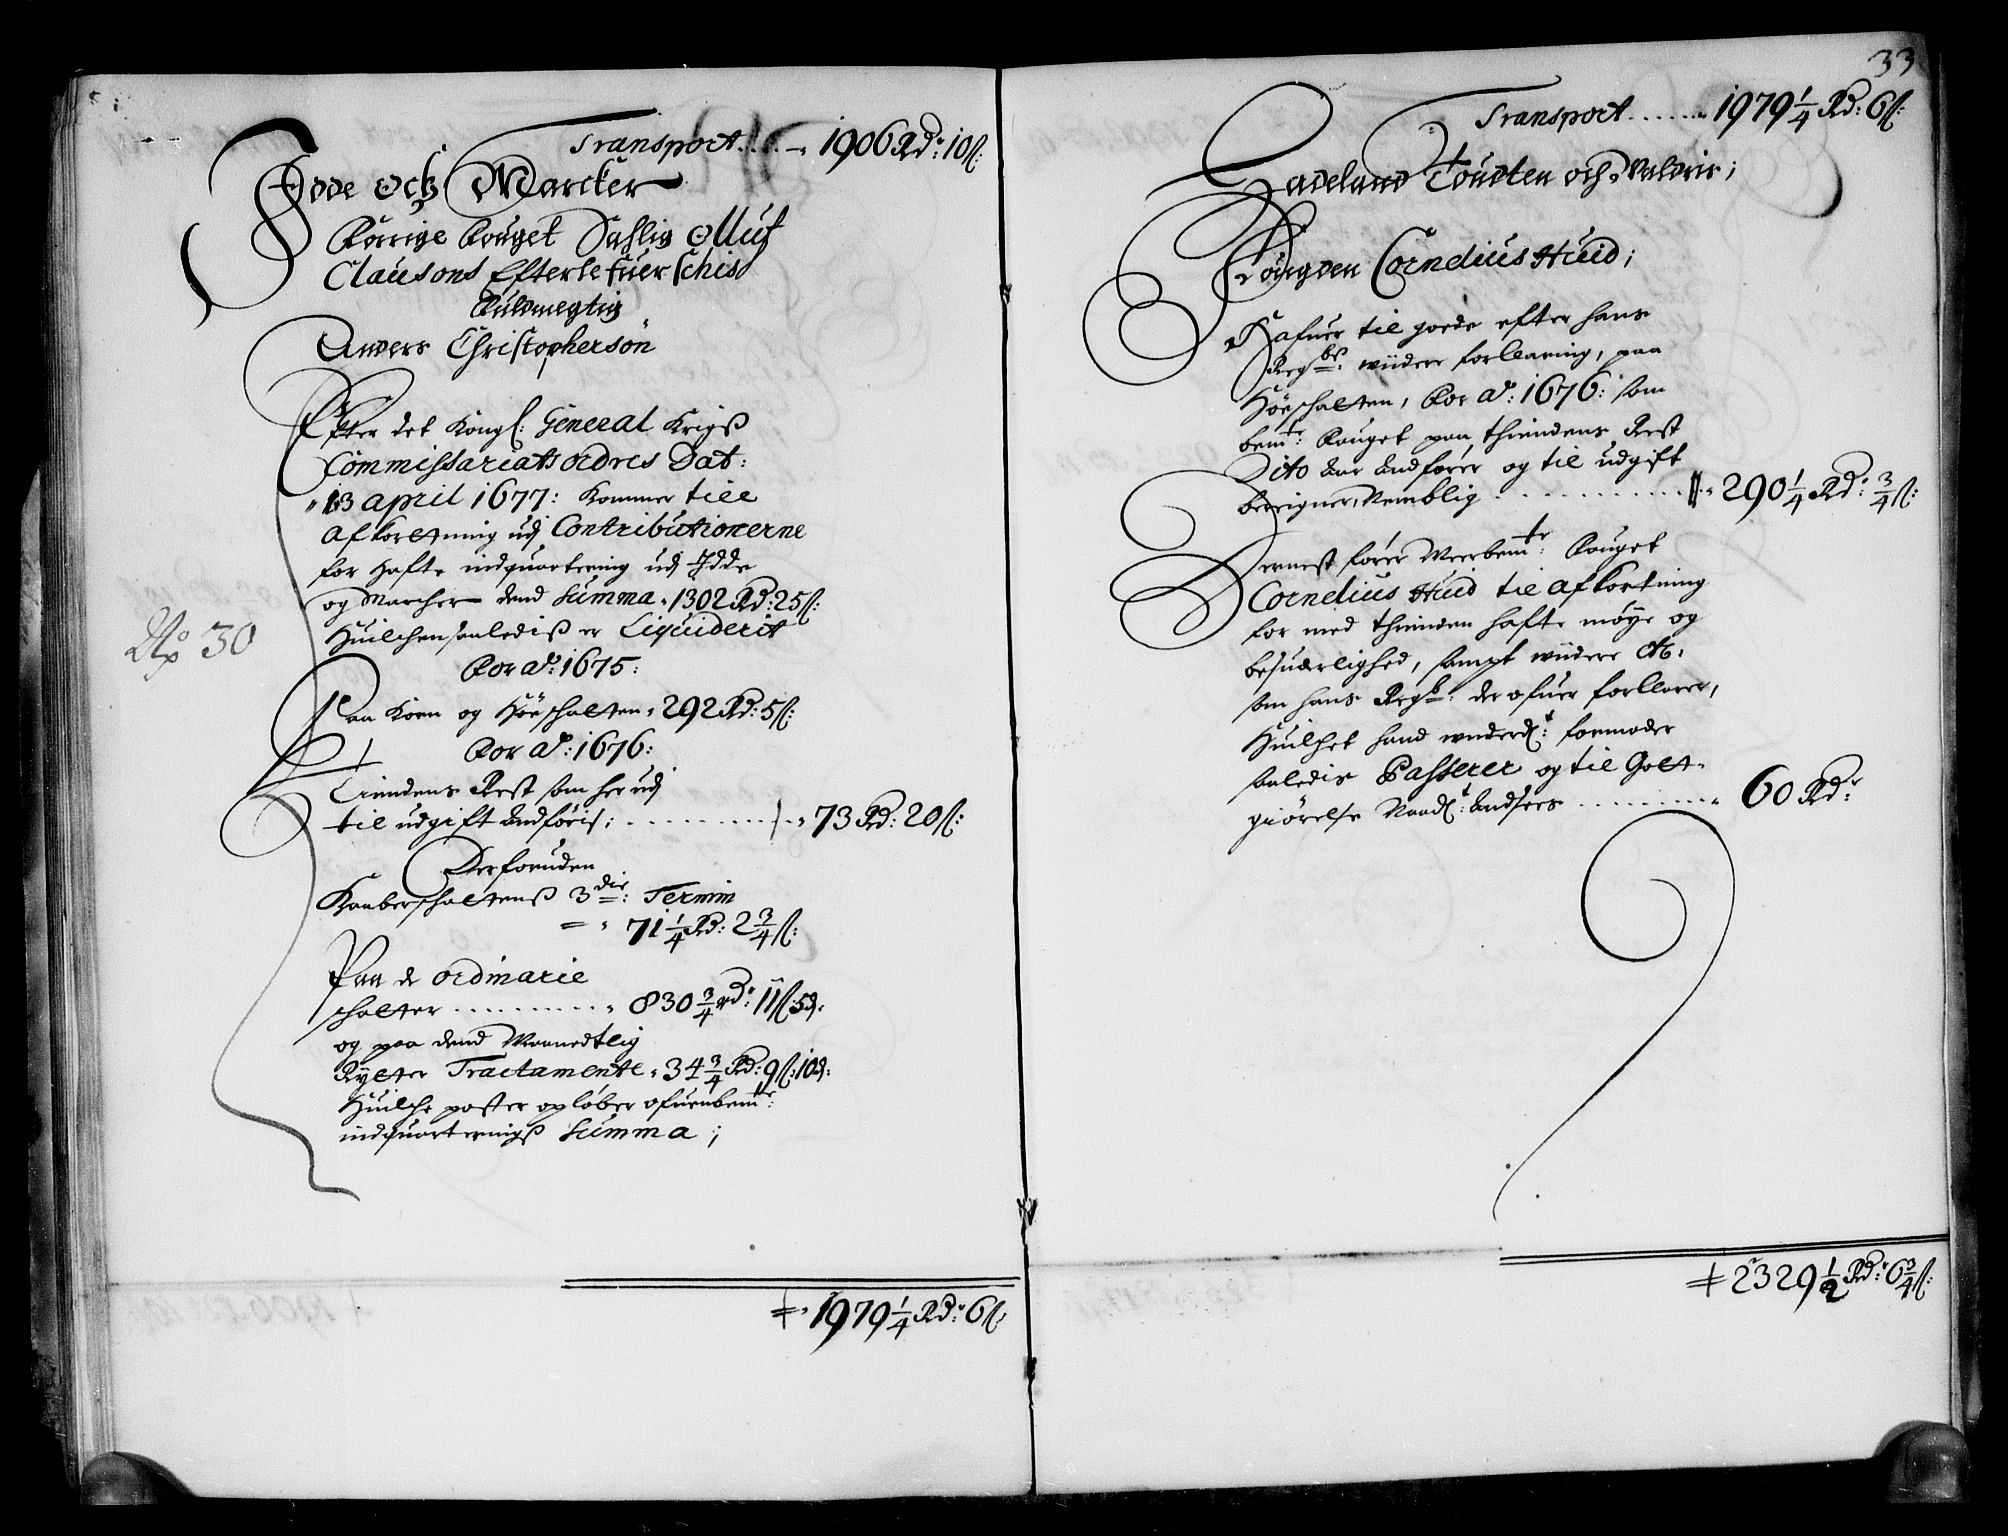 Transport..... 1906 Rd: 10 ſ:
Idde och Marcker
Forrige Fouget Sahlig Olluf
Clausons Efterlefuerschis
Fuldmegtig
Anders Christophersön
Efter det Kongl: General Krigß
Commissariats ordres Dat:
13 april 1677: Kommer till
Afkortning udj Contributionerne
for hafte indquartering udj Idde
og Marcher dend Summa 1302 Rd: 25 ſ:
Huilchen saalediß er Liquiderit
No 30
For Ao: 1675:
Paa Korn og Höe schatten 292 Rd: 5 ſ:
For Ao: 1676:
Tiendens Rest som her udj
til udgift Andføris: ........ 73 Rd: 20 ſ:
Derforuden
Kaaberschattenß 3die: Termin
71 1/4 Rd: 2 3/4 ſ:
Paa de ordinarie
schatter ......... 830 3/4 Rd: 11 ſ: 5 d:
og paa dend Maanedtlig
Rytter Tractamente 34 3/4 Rd: 9 ſ: 10 d:
Huilche poster opløber ofuenbemte:
indquarteringß Summa;
1979 1/4 Rd: 6 ſ
33
Transport...... 1979 1/4 Rd: 6 ſ:
Hadeland Toudten och Valdris;
Fougden Cornelius Huid;
Hafuer til gode efter hans
Regbs: wiidere forklaring, paa
Höeschatten, For Ao: 1676: som
bemte: Fouget paa thiendens Rest
Dito Aar Andfører og til udgift
beregner, Nemblig ........... 290 1/4 Rd: 3/4 ſ:
Dernest fører Meerbemte: Fouget
Cornelius Huid til afkortning
for med thienden hafte møye og
besuærlighed, sampt wiidere
som hans Regb: der ofuer forklarer,
Huilchet hand formoder
saaledis Passerer og til Gott-
giørelse Andsees .......... 60 Rdr
2329 1/2 Rd: 6 3/4 ſ: